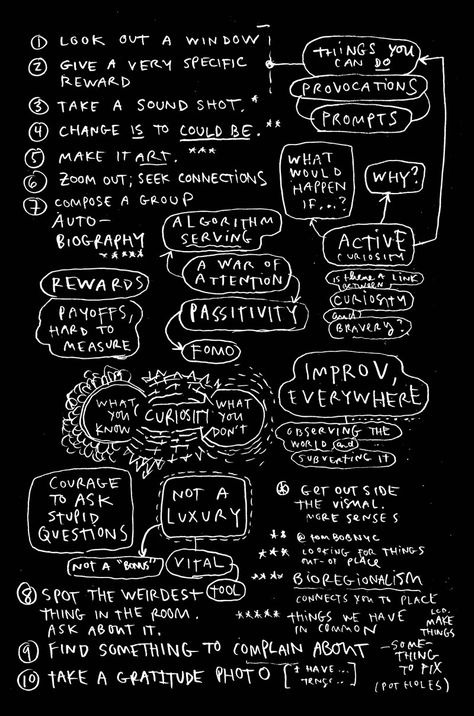 ① LOOK OUT A WINDOW
② GIVE A VERY SPECIFIC
REWARD
③ TAKE A SOUND SHOT. *
④ CHANGE IS TO COULD BE. **
⑤ MAKE IT ART. ***
⑥ ZOOM OUT; SEEK CONNECTIONS
⑦ COMPOSE A GROUP
AUTO-
BIOGRAPHY
*****
THINGS YOU
CAN DO
PROVOCATIONS
PROMPTS
WHAT
WOULD
HAPPEN
IF...?
WHY?
ACTIVE
CURIOSITY
IS THERE A LINK
BETWEEN
CURIOSITY
and
BRAVERY?
ALGORITHM
SERVING
A WAR OF
ATTENTION
PASSITIVITY
FOMO
REWARDS
PAYOFFS,
HARD TO
MEASURE
IMPROV,
EVERYWHERE
OBSERVING THE
WORLD and
SUBVERTING IT
WHAT
YOU
KNOW
CURIOSITY
WHAT
YOU
DON'T
COURAGE
TO ASK
STUPID
QUESTIONS
NOT A
LUXURY
NOT A "BONUS"
VITAL
TOOL
* GET OUTSIDE
THE VISUAL.
MORE SENSES
** @TOMBOBNYC
*** LOOKING FOR THINGS
OUT-OF PLACE
**** BIOREGIONALISM
CONNECTS YOU TO PLACE
***** THINGS WE HAVE
IN COMMON
MAKE
THINGS
⑧ SPOT THE WEIRDEST
THING IN THE ROOM.
ASK ABOUT IT.
⑨ FIND SOMETHING TO COMPLAIN ABOUT
– SOME-
THING
TO FIX
(POT HOLES)
⑩ TAKE A GRATITUDE PHOTO
[I HAVE...